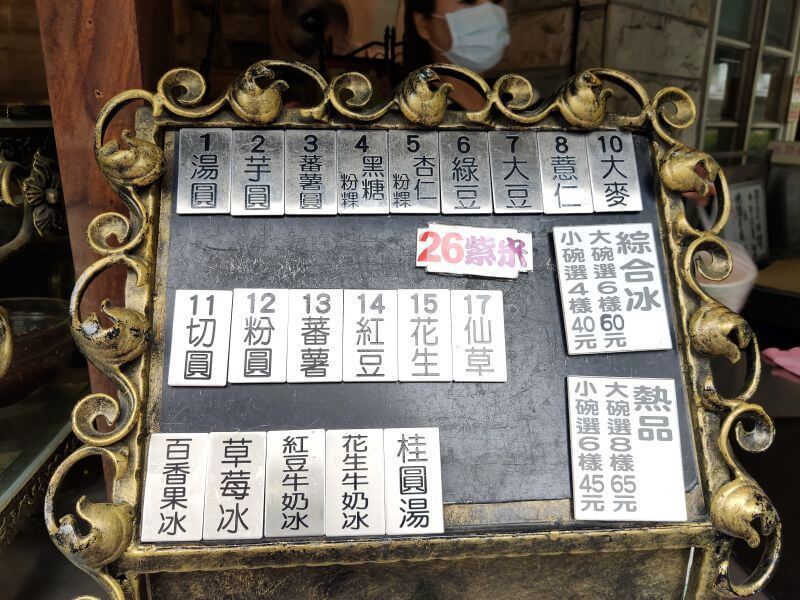 1 湯圓
2 芋圓
3 蕃薯圓
4 黑糖粉粿
5 杏仁粉粿
6 綠豆
7 大豆
8 薏仁
10 大麥
26紫米
綜合冰
大碗選6樣60元
小碗選4樣40元
11 切圓
12 粉圓
13 蕃薯
14 紅豆
15 花生
17 仙草
熱品
大碗選8樣65元
小碗選6樣45元
百香果冰
草莓冰
紅豆牛奶冰
花生牛奶冰
桂圓湯